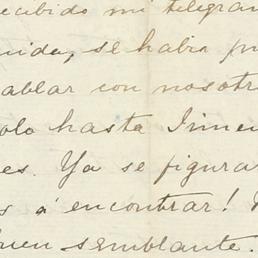 ecibido mi telegra
uida, se habia p
ablar con nosotr
olo hasta Irm
es. Ya se figura
s á encontrar!
buen semblante.